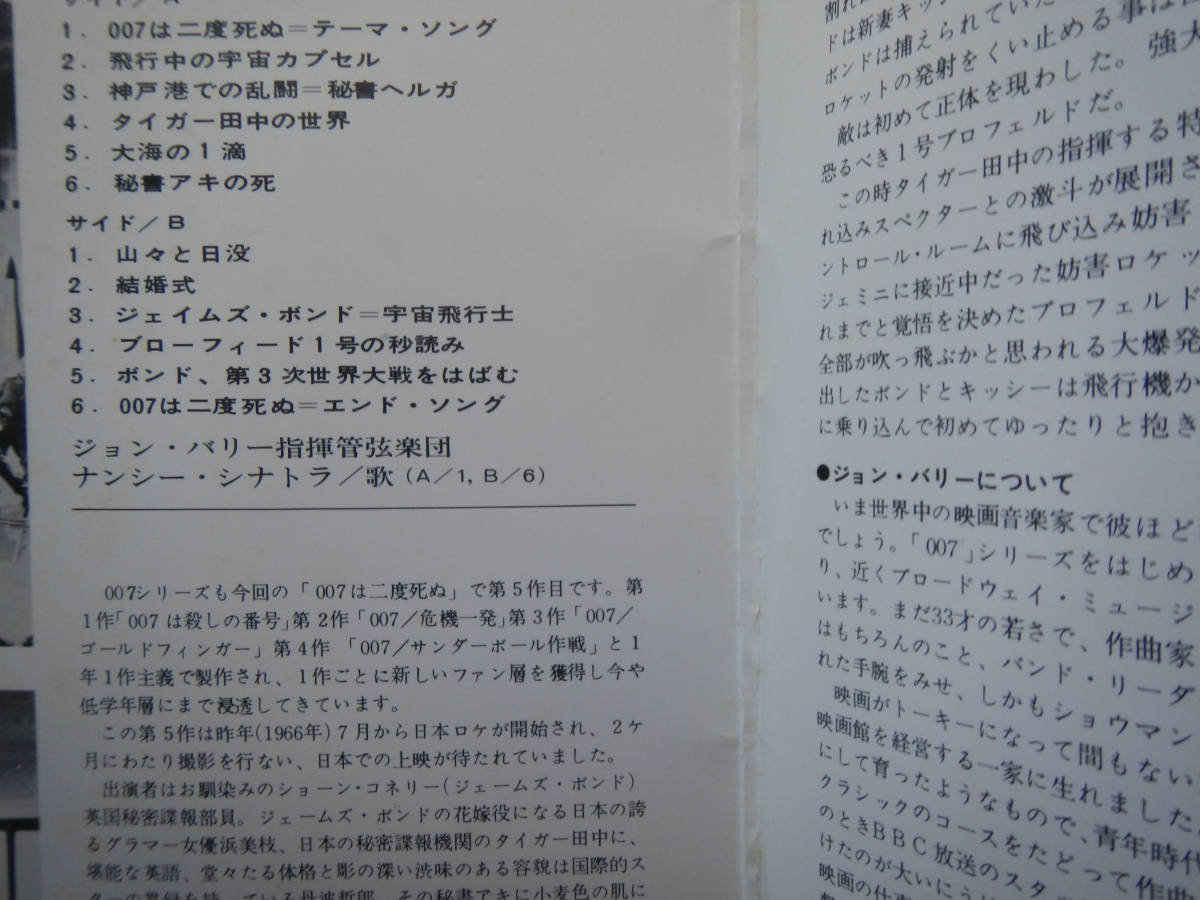 サイド/A
1. 007は二度死ぬ=テーマ・ソング
2. 飛行中の宇宙カプセル
3. 神戸港での乱闘=秘書ヘルガ
4. タイガー田中の世界
5. 大海の1滴
6. 秘書アキの死
サイド/B
1. 山々と日没
2. 結婚式
3. ジェイムズ・ボンド=宇宙飛行士
4. ブローフィード1号の秒読み
5. ボンド、第3次世界大戦をはばむ
6. 007は二度死ぬ=エンド・ソング
ジョン・バリー指揮管弦楽団
ナンシー・シナトラ/歌(A/1, B/6)
007シリーズも今回の「007は二度死ぬ」で第5作目です。第
1作「007は殺しの番号」第2作「007/危機一発」第3作「007/
ゴールドフィンガー」第4作 「007/サンダーボール作戦」と1
年1作主義で製作され、1作ごとに新しいファン層を獲得し今や
低学年層にまで浸透してきています。
この第5作は昨年(1966年)7月から日本ロケが開始され、2ケ
月にわたり撮影を行ない、日本での上映が待たれていました。
出演者はお馴染みのショーン・コネリー(ジェームズ・ボンド)
英国秘密諜報部員。ジェームズ・ボンドの花嫁役になる日本の誇
るグラマー女優浜美枝、日本の秘密諜報機関のタイガー田中に、
堪能な英語、堂々たる体格と彫の深い渋味のある容貌は国際的ス
ターの貫録を持っている丹波哲郎、その秘書アキに小麦色の肌に
割れ
ドは新妻キッシ
ボンドは捕えられていた
ロケットの発射をくい止める事は
敵は初めて正体を現わした。強大
恐るべき1号ブロフェルドだ。
この時タイガー田中の指揮する特
れ込みスペクターとの激斗が展開さ
ントロール・ルームに飛び込み妨害
ジェミニに接近中だった妨害ロケッ
れまでと覚悟を決めたブロフェルド
全部が吹っ飛ぶかと思われる大爆発
出したボンドとキッシーは飛行機か
に乗り込んで初めてゆったりと抱き
●ジョン・バリーについて
いま世界中の映画音楽家で彼ほど
でしょう。「007」シリーズをはじめ
り、近くブロードウェイ・ミュージ
います。まだ33才の若さで、作曲家
はもちろんのこと、バンド・リーダ
れた手腕をみせ、しかもショウマン
映画がトーキーになって間もない
映画館を経営する一家に生れました
にして育ったようなもので、青年時代
クラシックのコースをたどって作曲
のときBBC放送のスタ
けたのが大いにうけ
映画の仕事